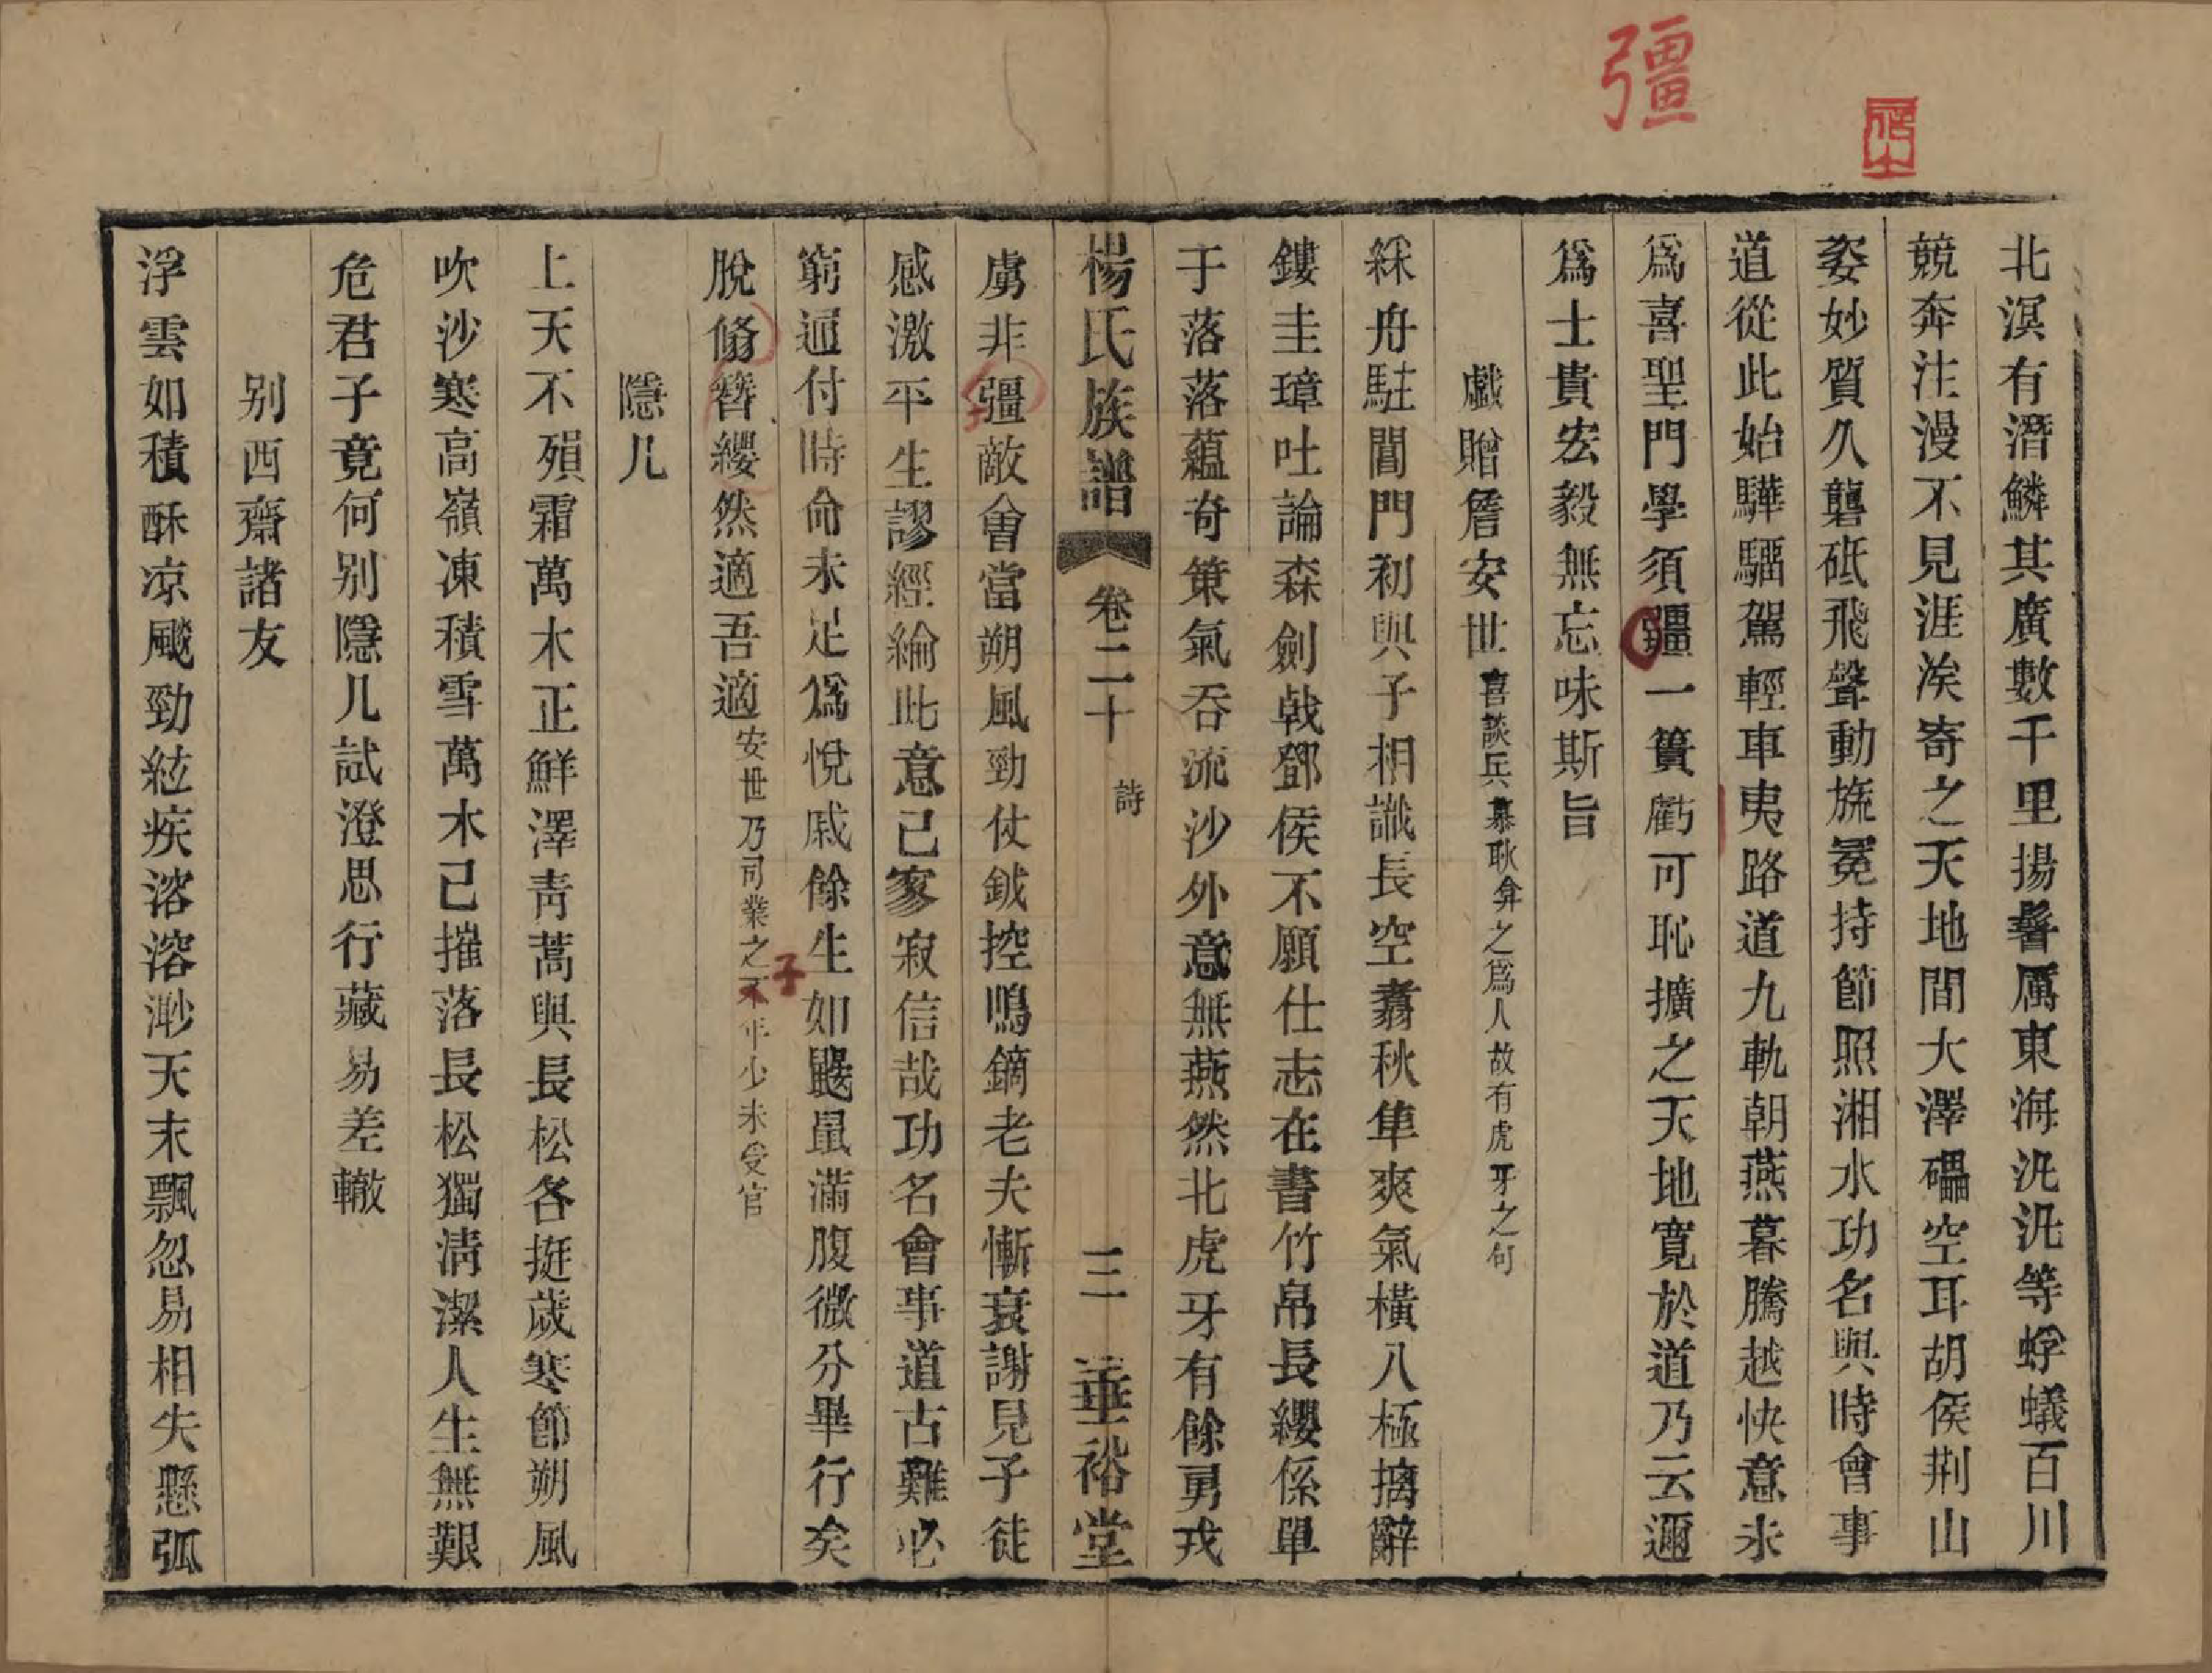 彊
北溟有潛鱗其廣數千里揚鬐厲東海汎汎等蜉蟻百川
競奔注漫不見涯涘寄之天地間大澤礨空耳胡侯荆山
姿妙質久礱砥飛聲動旒冕持節照湘水功名與時會事
道從此始驊騮駕輕車夷路道九軌朝燕暮騰越快意未
爲喜聖門學須疆一簣虧可恥擴之天地寬於道乃云邇
爲士貴宏毅無忘味斯旨
戲贈詹安世喜談兵慕耿弇之爲人故有虎牙之句
綵舟駐閶門初與子相識長空翥秋隼爽氣橫八極摛辭
鏤圭璋吐論森劍戟鄧侯不願仕志在書竹帛長纓係單
于落落蘊奇策氣吞流沙外意無燕然北虎牙有餘勇戎
楊氏族譜 卷二十 詩 三 華裕堂
虜非彊敵會當朔風勁仗鉞控鳴鏑老夫慚衰謝見子徒
感激平生謬經綸此意已寥寂信哉功名會事道古難必
窮通付時命未足爲悅戚餘生如鼴鼠滿腹微分畢行矣
脫脩簪纓然適吾適安世乃司業之子年少未受官
隱几
上天不殞霜萬木正鮮澤青蒿與長松各挺歲寒節朔風
吹沙寒高嶺凍積雪萬木已摧落長松獨清潔人生無艱
危君子竟何别隱几試澄思行藏易差轍
别西齋諸友
浮雲如積酥凉颷勁絃疾溶溶渺天末飄忽易相失懸弧